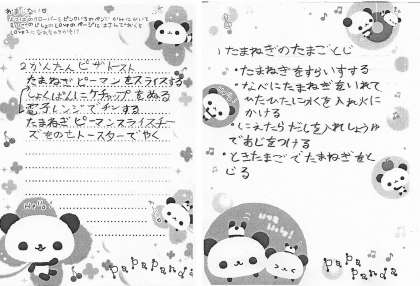 おまじない
2かんたんピザトースト
たまねぎピーマンをスライスする
しょくぱんにケチャップをぬる
電子レンジでチンする
たまねぎピーマンスライスチー
ズをのせトースターでやく
papapanda
1たまねぎのたまごとじ
・たまねぎをすらいすする
・なべにたまねぎをいれて
ひたひたに水を入れ火に
かける
・にえたらだしを入れしょうゆ
であじをつける
・ときたまごでたまねぎをと
じる
papapanda